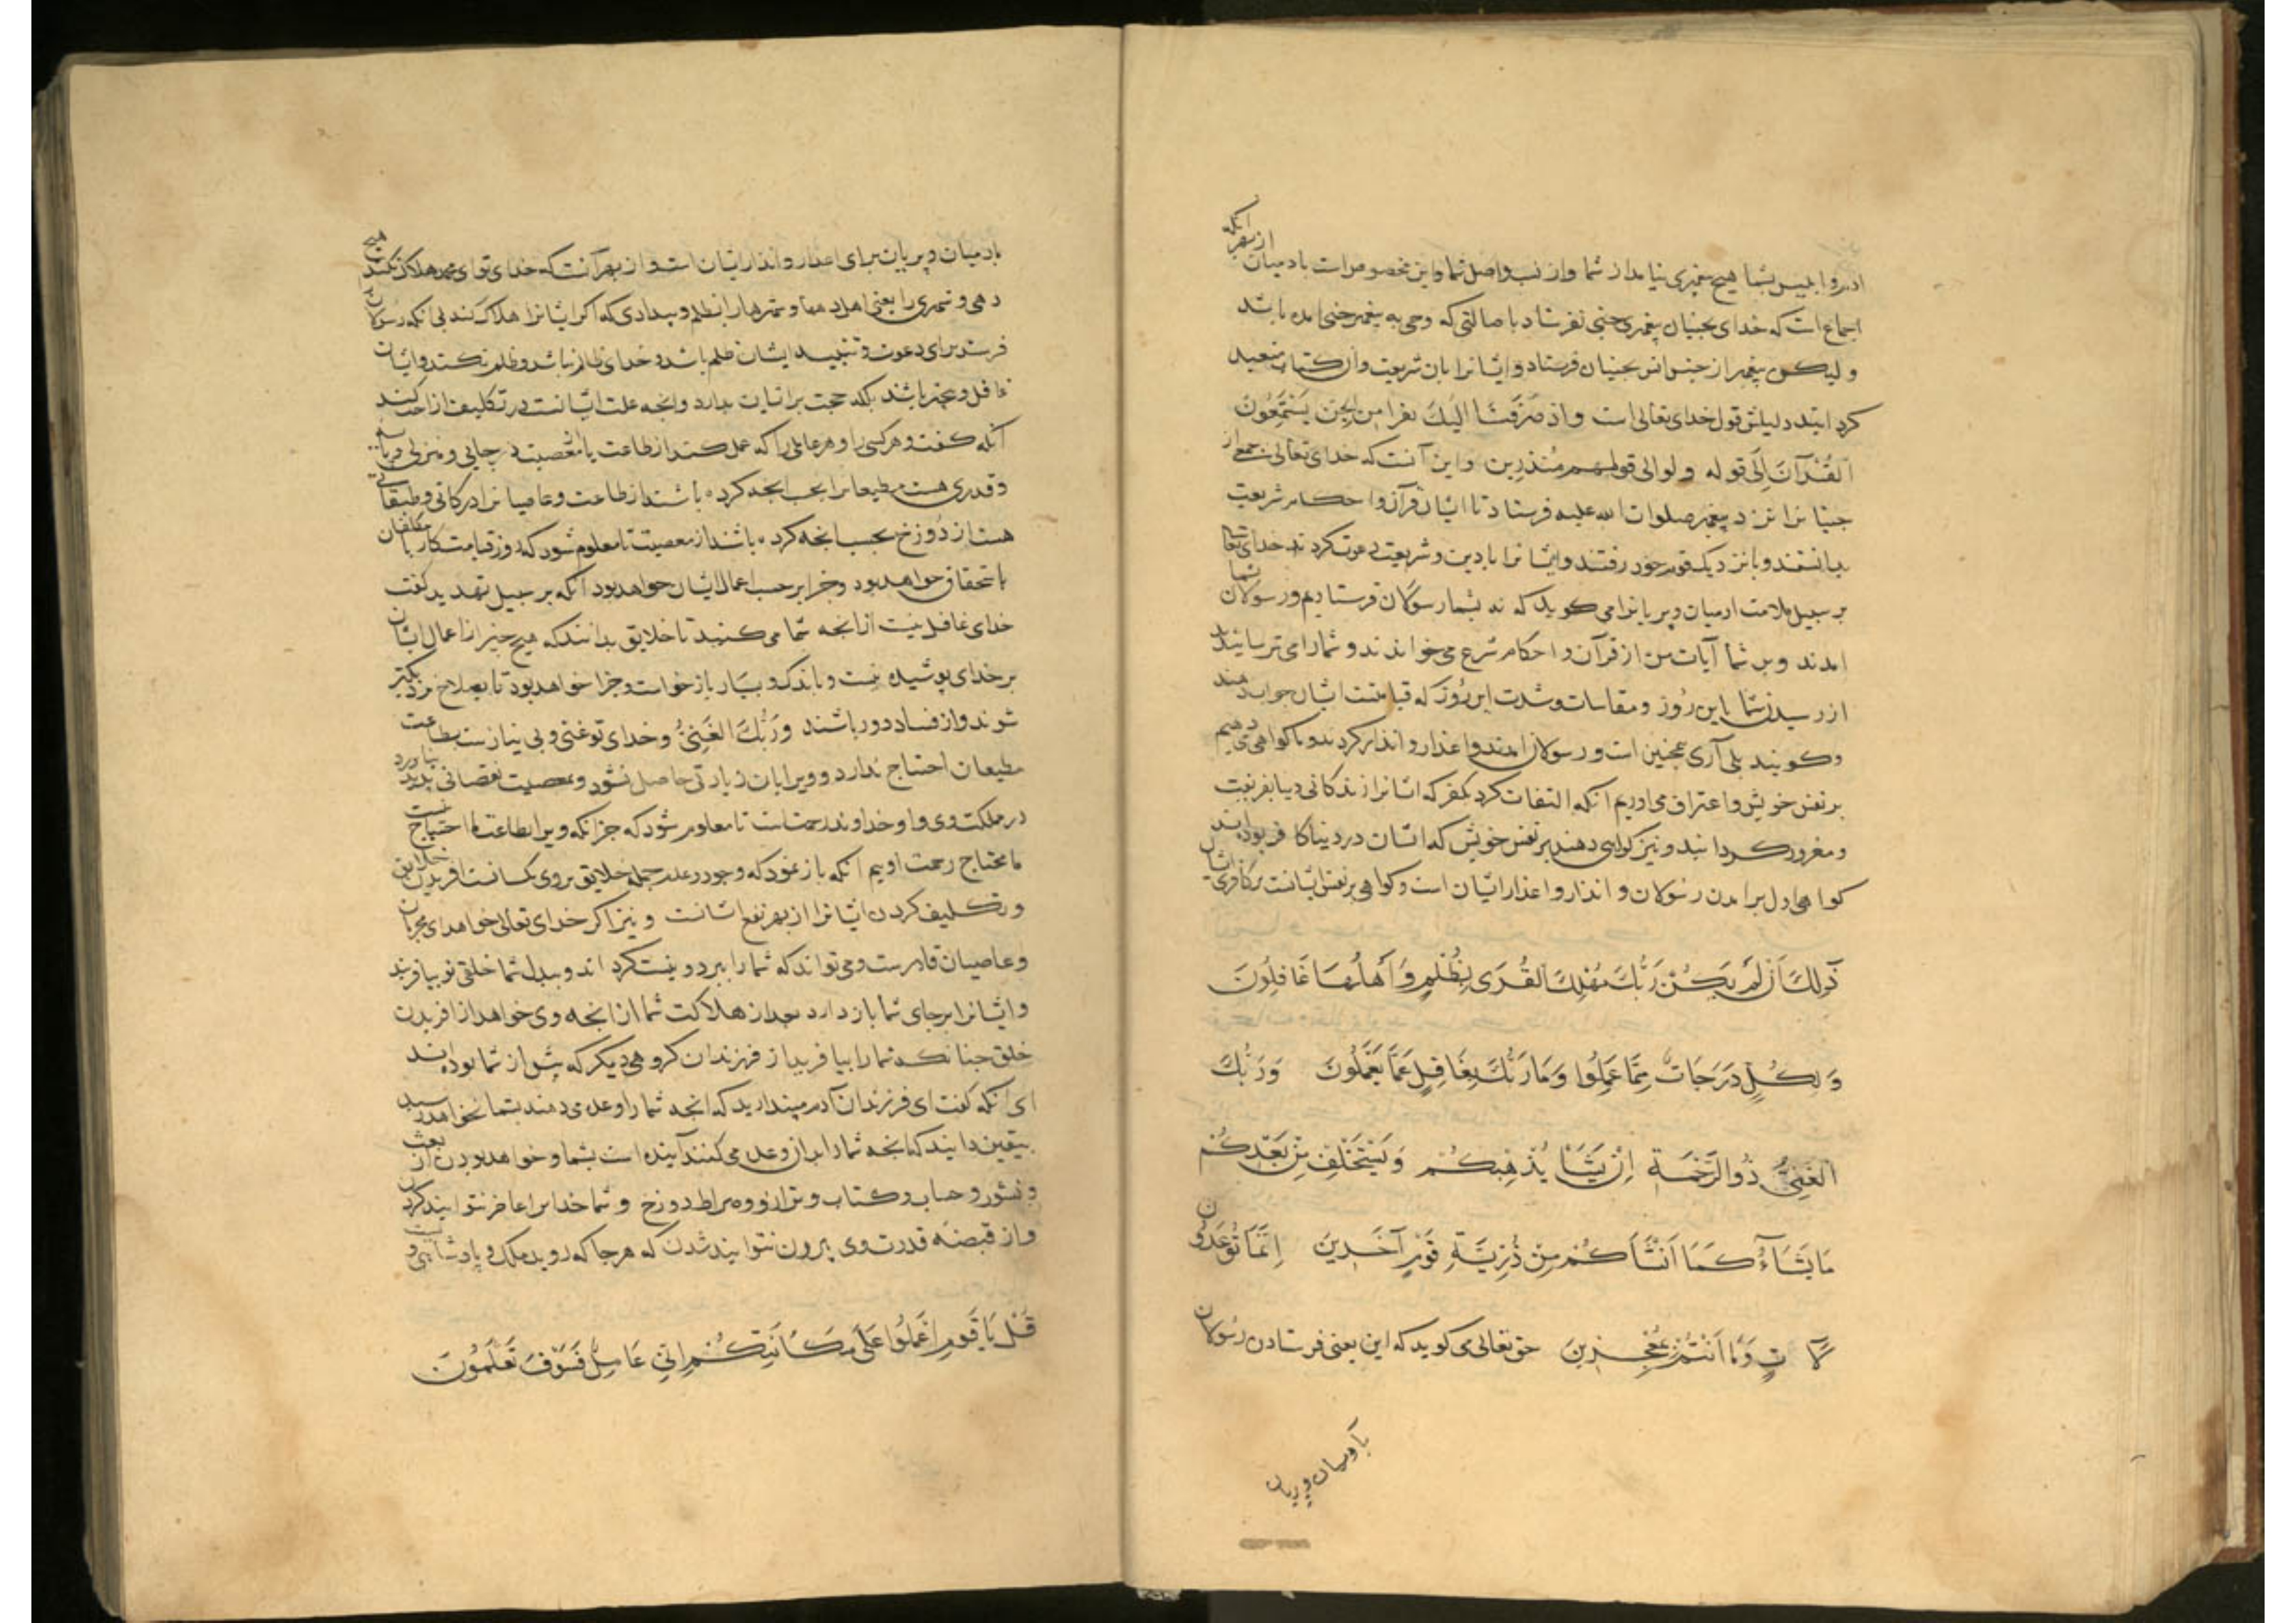 از بهر آنکه
ادم و ابلیس بشما هیچ پیغمبری نیامد از شما و از نسب و اصل شما و این مخصوص است بادمیان
اجماع است که خدای بجنیان پیغمبری جنی نفرستاد باصالتی که وحی به پیغمبر جنی امده باشد
و لیکن پیغمبر از جنس انس بجنیان فرستاد و ایشانرا بان شریعت و ان کتاب متعبد
کرد ایند دلیلش قول خدای تعالی است واذ صَرَفْنَا اِلَيْكَ نفرا من الجن يَسْتَمِعُونَ
اَلْقُرْآنَ اِلَی قوله ولوا الی قومهم مُنذرین و این آنست که خدای تعالی جمعی از
جنیانرا نزد پیغمبر صلوات الله علیه فرستاد تا ایشان قرآن و احکام شریعت
بدانستند و با نزدیک قوم خود رفتند و ایشانرا بادین و شریعت دعوت کردند خدای تعالی
بر سبیل ملامت ادمیان و پریانرا می کوید که نه بشما رسولان فرستادیم و رسولان بشما
امدند و بر شما آیات من از قرآن و احکام شرع می خواندند و شمارا می ترسانیدند
از رسیدن شما باین رُوز و مقاسات و شدت این رُوز که قیامتست ایشان جواب دهند
و کویند بلی آری همچنین است و رسولان امدند و اعذار و انذار کردند و ما کواهی می دهیم
بر نفس خویش و اعتراف می اوریم انکه التفات کرد کفر که ایشانرا زندکانی دنیا بفریفت
و مغرور کردانید و نیز کواهی دهند بر نفس خویش که ایشان در دنیا کافر بوده اند
کواهی اول بر امدن رسولان و انذار و اعذار ایشان است و کواهی بر نفس ایشانست بر کافری ایشان
ذٰلِكَ اَنْ لَمْ يَكُنْ رَبُّكَ مُهْلِكَ الْقُرَى بِظُلْمٍ وَاَهْلُهَا غَافِلُونَ
وَ لِكُلٍّ دَرَجَاتٌ مِمَّا عَمِلُوا وَمَا رَبُّكَ بِغَافِلٍ عَمَّا يَعْمَلُونَ وَرَبُّكَ
الْغَنِيُّ ذُو الرَّحْمَةِ اِنْ يَشَأْ يُذْهِبْكُمْ وَيَسْتَخْلِفْ مِنْ بَعْدِكُمْ
مَا يَشَاءُ كَمَا اَنْشَأَكُمْ مِنْ ذُرِّيَّةِ قَوْمٍ آخَرِينَ اِنَّمَا تُوعَدُونَ
لَآتٍ وَمَا اَنْتُمْ بِمُعْجِزِينَ حق تعالی می کوید که این یعنی فرستادن رسولان
بادمیان و پریان
بادمیان و پریان برای اعذار و انذار ایشان است و از بهر آنست که خدای تو ای محمد هلاک نکند هیچ
دهی و شهری را یعنی اهل دهها و شهرها را بظلم و بیدادی که اکر ایشانرا هلاک کند بی انکه رسولان
فرستد برای دعوت و تنبیه ایشان ظلم باشد و خدای ظالم نباشد و ظلم نکند و ایشان
غافل و بی خبر باشند بلکه حجت بر ایشان بدارد و انچه علت ایشانست در تکلیف ازاحت کند
آنکه کفت و هر کسی را و هر عاملی را که عمل کند از طاعت یا معصیت درجاتی و منزلی و پایه
و قدری هست مطیعانرا بحسب انچه کرده باشند از طاعت و عاصیانرا درکاتی و طبقاتی
هست از دُوزخ بحسب انچه کرده باشند از معصیت تا معلوم شود که روز قیامت کار با مکلفان
باستحقاق خواهد بود و جزا بر حسب اعمال ایشان خواهد بود آنکه بر سبیل تهدید کفت
خدای غافل نیست از انچه شما می کنید تا خلایق بدانند که هیچ چیز از اعمال ایشان
بر خدای پوشیده نیست و باندک و بسیار بازخواست و جزا خواهد بود تا بصلاح نزدیکتر
شوند و از فساد دور باشند وَرَبُّكَ الْغَنِيُّ و خدای تو غنی و بی نیازست بطاعت
مطیعان احتیاج ندارد و ویرا بان زیادتی حاصل نشود و معصیت نقصانی پدید نیاورد
در مملکت وی و او خداوند رحمتست تا معلوم شود که جز انکه ویرا بطاعت ما احتیاج نیست
ما محتاج رحمت اوییم انکه باز نمود که وجود و عدم جمله خلایق بر وی یکسانست افریدن خلایق
و تکلیف کردن ایشانرا از بهر نفع ایشانست و نیز اکر خدای تعالی خواهد ای مجرمان
و عاصیان قادرست و می تواند که شما را ببرد و نیست کرد اند و ببدل شما خلقی نو بیافریند
و ایشانرا بر جای شما باز دارد بعد از هلاکت شما از انچه وی خواهد از افریدن
خلق چنانکه شما را بیافرید از فرزندان کروهی دیکر که پیش از شما بوده اند
ای انکه کفت ای فرزندان آدم مپندارید که انچه شما را وعده می دهند بشما نخواهد رسید
بیقین دانید که انچه شما را بدان وعده می کنند آینده است بشما و خواهد بودن از بعث
و نشور و حساب و کتاب و ترازو و صراط و دوزخ و شما خدایرا عاجز نتوانید کردن
و از قبضه قدرت وی بیرون نتوانید شدن که هر جا که روید ملک و پادشاهی ویست
قُلْ يَا قَوْمِ اعْمَلُوا عَلَى مَكَانَتِكُمْ اِنِّي عَامِلٌ فَسَوْفَ تَعْلَمُونَ